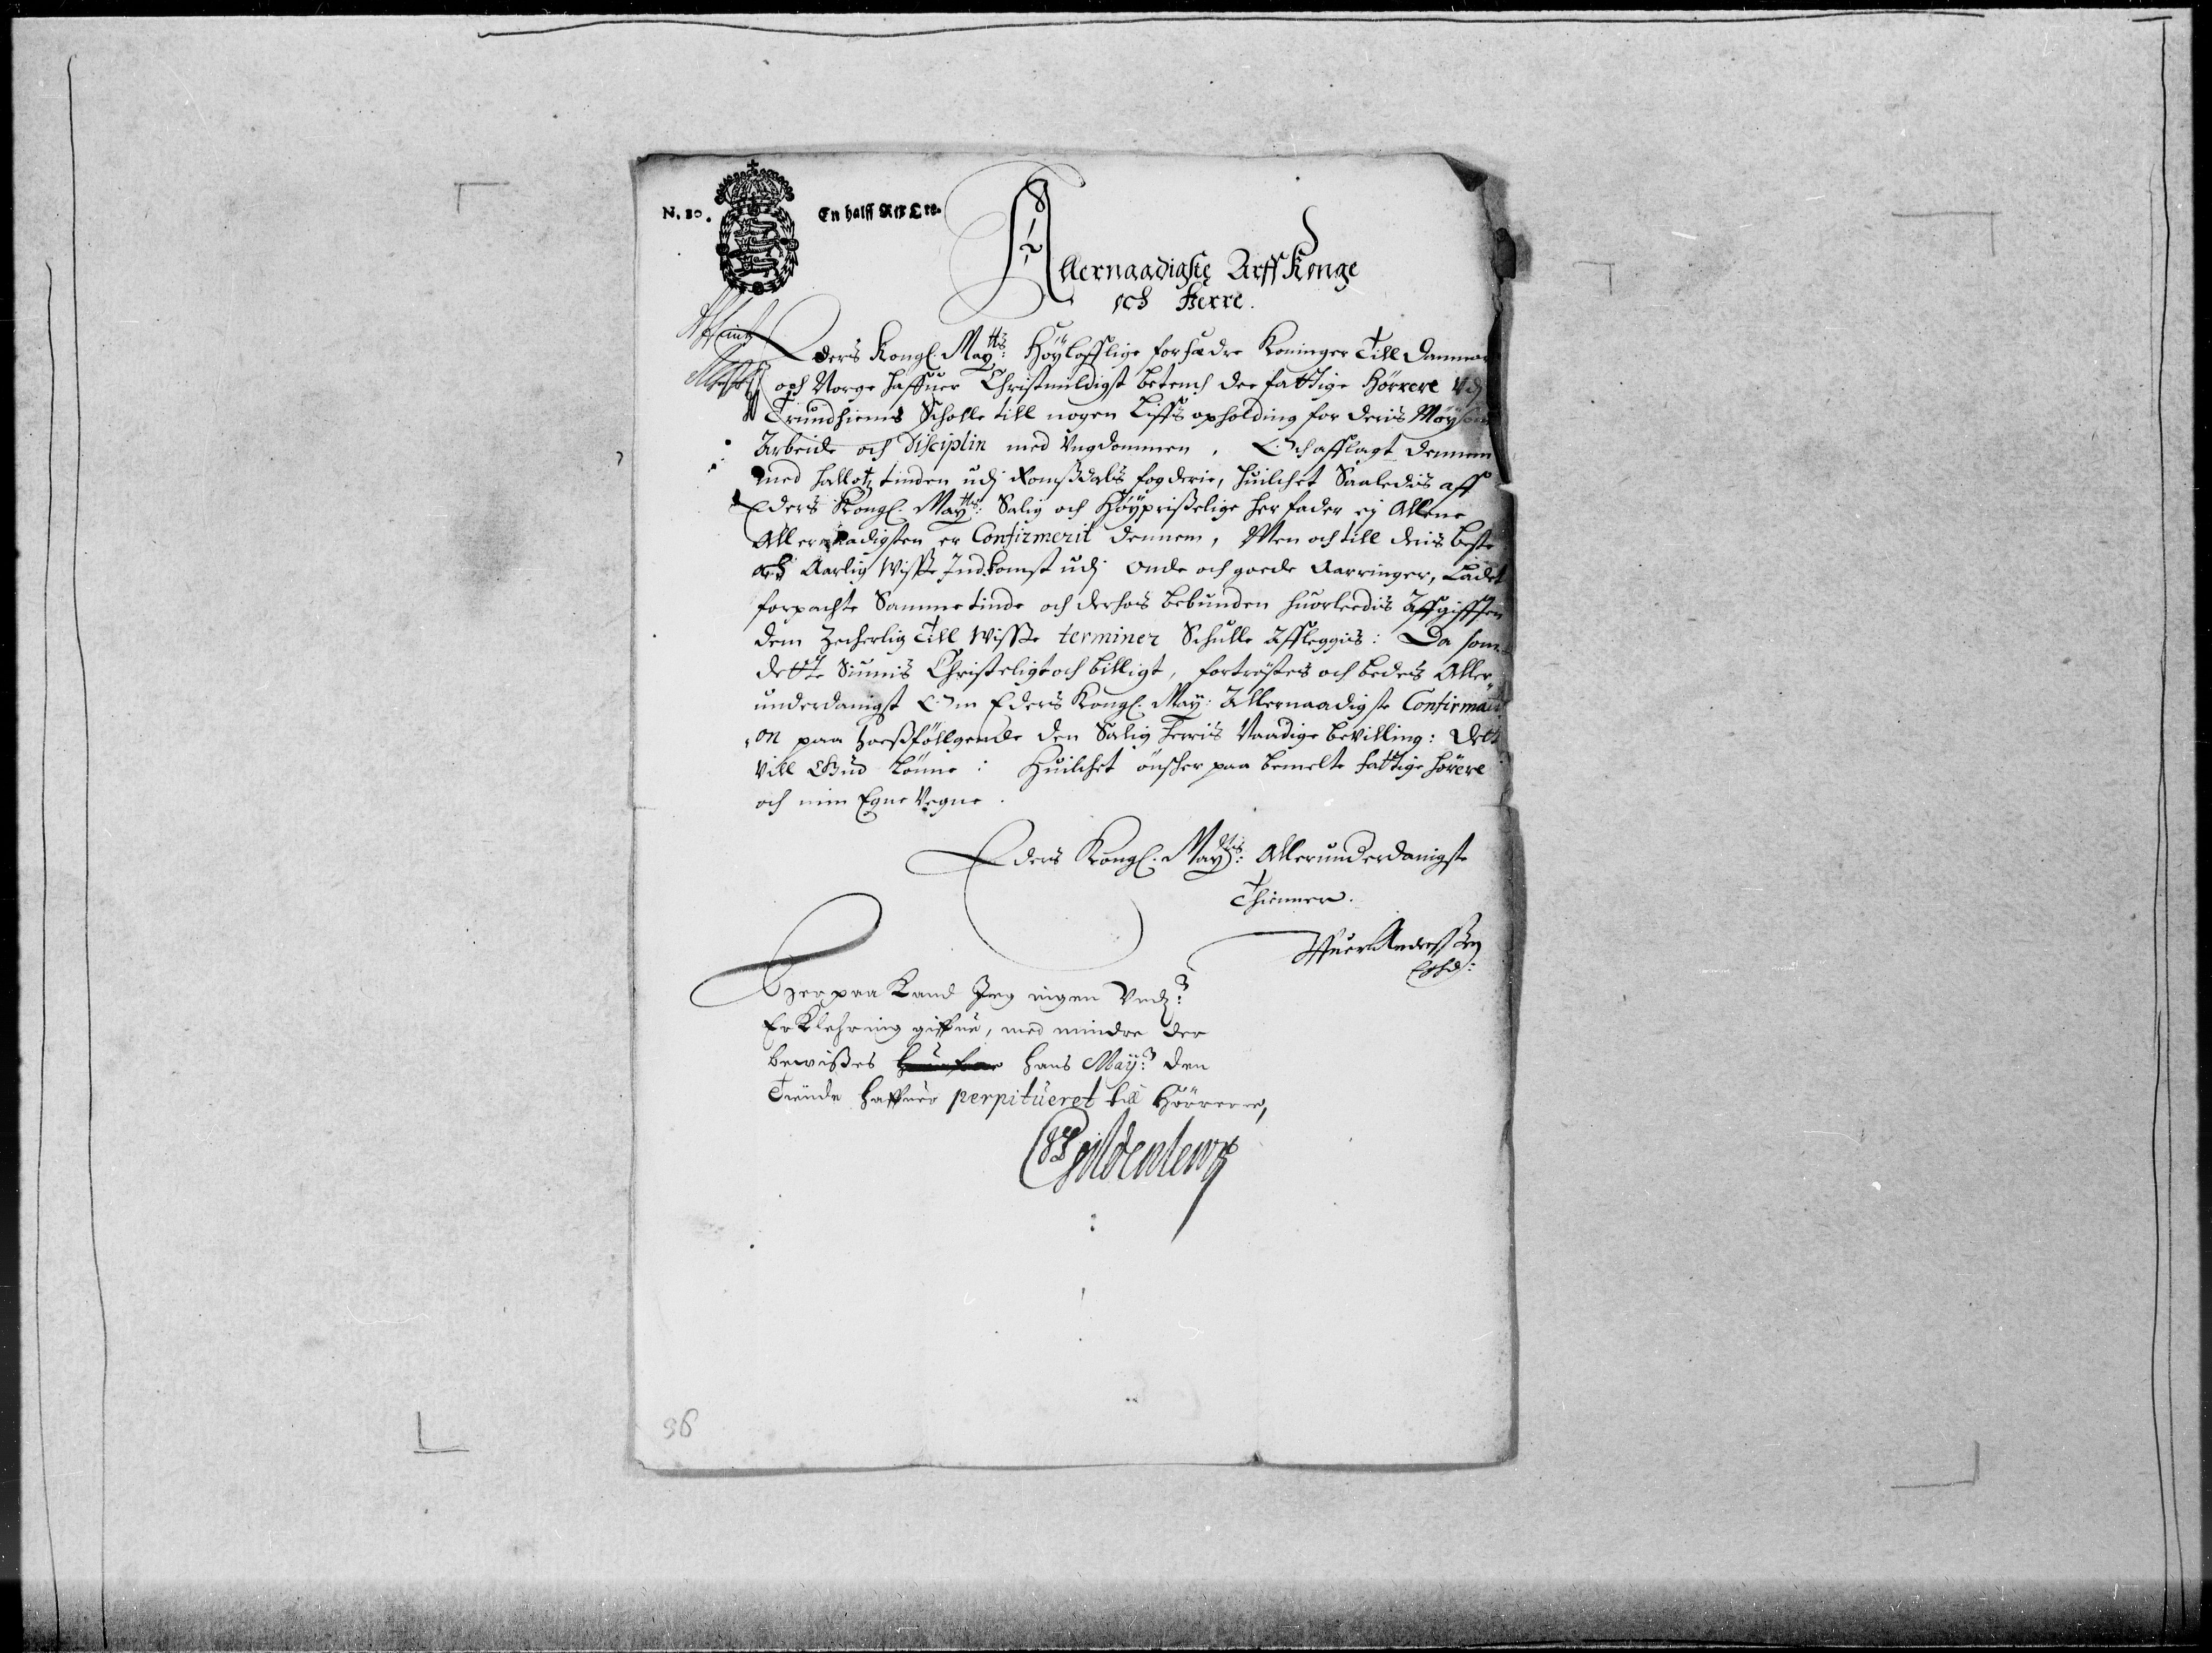 N. 30. En halff Rix Ort.
Allernaadigste Arff Konge
och Herre.
Eders Kongl. Maytts: Höylofflige forfædre Koninger Till Danmar
och Norge haffuer Christmildigst betench der fattige Hörrere Vdj
Trundhiems Scholle till nogen Liffs opholding for deris Möysom
Arbeide och disciplin med Ungdommen, Och afflagt dennem
med hallot tinden udj Romssdals fogderie, huilchet Saaledis aff
Eders Kongl. Maytts: Salig och Höyprisselige her fader ej Allene
Allernaadigsten er Confirmerit dennem, Men och till deris beste
och Aarlig Wisse Indkomst udj Onde och goede Aaringer, Ladet
forpachte Samme tinde och derhos bebunden huorledis Affgifften
dem Zecherlig Till Wisse terminer Schulle Affleggis: Da som
dette Siunis Christeligt och billigt, fortröstes och bedes Aller
underdanigst Om Eders Kongl. May: Allernaadigste Confirmati
on paa hossföllgende den Salig Herris Naadige bevilling: Dett
vill Gud Lönne: Huilchet önscher paa bemelte fattige hörere
och min Egne Vegne.
Eders Kongl. Maytts: Allerunderdanigste
Thienner.
Iffuer Anderssen
Herpaa Kand Jeg ingen Und:
Erklehring giffue, med mindre der
bewisses hans May: den
Tiende haffuer perpitueret till Hörrerne,
Gyldenlew
96